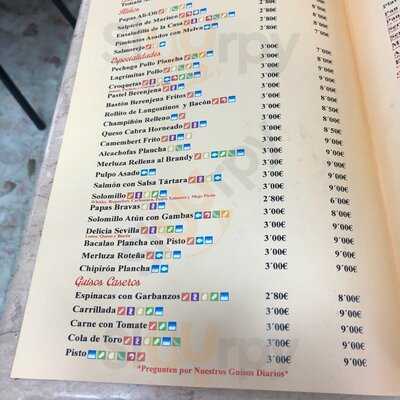 Tomate
Fríos
Papas Ali-Oli 2'80€
Salpicón de Marisco 3'00€ 8'00€
Ensaladilla de la Casa 2'80€
Pimientos Asados con Melva 3'00€
Salmorejo 3'00€ 7'00€
Especialidades
Pechuga Pollo Plancha 3'00€
Lagrimitas Pollo 3'00€
Croquetas 3'00€
Pastel Berenjena 3'00€
Bastón Berenjena Fritos 3'00€ 8'00€
Rollito de Langostinos y Bacón 3'00€
Champiñón Relleno 3'00€ 8'00€
Queso Cabra Horneado 3'00€ 8'50€
Camembert Frito 3'00€ 8'00€
Alcachofas Plancha 3'00€ 8'00€
Merluza Rellena al Brandy 3'00€ 9'00€
Pulpo Asado 3'00€ 9'00€
Salmón con Salsa Tártara 3'00€ 9'00€
Solomillo 3'00€ 9'00€
Papas Bravas 2'80€ 6'00€
Solomillo Atún con Gambas 3'00€ 9'00€
Delicia Sevilla 3'00€ 9'00€
Bacalao Plancha con Pisto 3'00€ 9'00€
Merluza Roteña 3'00€ 9'00€
Chipirón Plancha 3'00€ 9'00€
Guisos Caseros
Espinacas con Garbanzos 2'80€ 8'00€
Carrillada 3'00€ 9'00€
Carne con Tomate 3'00€ 9'00€
Cola de Toro 3'00€ 9'00€
Pisto 3'00€ 9'00€
*Pregunten por Nuestros Guisos Diarios*